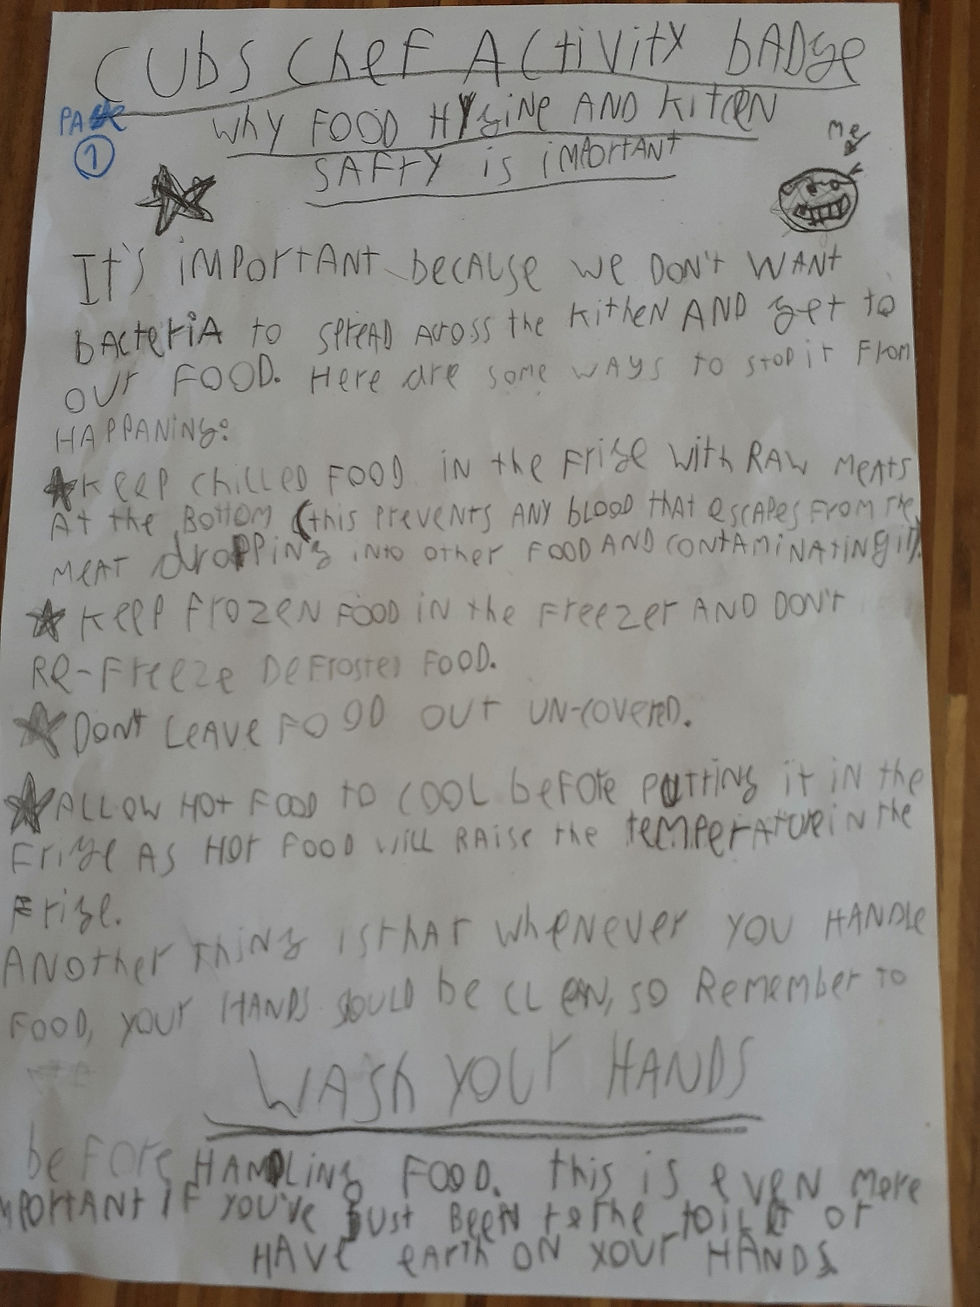 CUbS Chef ACtiVitY bADge
PAGE
1
Why FOOD HYgiNe AND KitCeN
SAFTY is iMPORTANT
Me
It's iMPORTANT because we DON'T WANT
bActeriA to SPREAD ACross the KitheN AND get to
OUr FOOD. Here are some WAYS to STOP it From
HAPPANiNg:
KeeP CHilleD FOOD iN the Frige With RAW MeAts
At the BoTTom (this PreveNts ANY blOOD thAT escAPes From the
MeAT droPPiNg iNto other FOOD AND CONTAMiNATiNg it).
Keep FroZeN FOOD iN the Freezer AND DON't
Re-Freeze DeFrosteD FOOD.
DoN't LeAve FOOD OUT UN-Covered.
ALLOW HOt FOOD to COOL beFore PuTTiNg it iN the
Frige AS HOt FOOD will RAise the teMPerAture iN the
Frige.
ANother ThiNg is thAT wheNever YOU HANDle
FOOD, YOUr HANDS SOULD be CLeAN, SO RemeMber TO
WASh YOUr HANDS
beFore HANDLiNg FOOD. this is eveN More
MPORTANT iF YOU've JUst BeeN to the toileT or
HAVe eArth ON YOUr HANDS